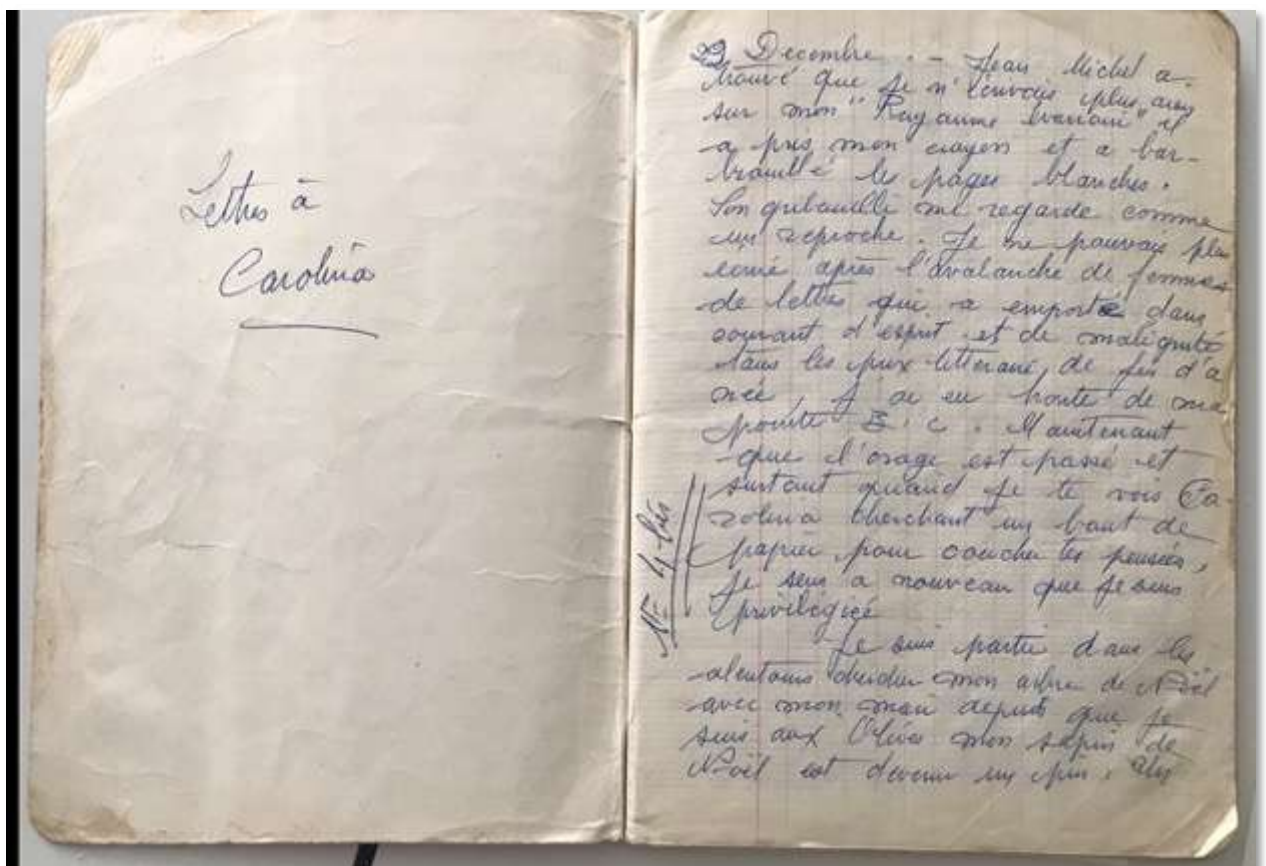 Lettres à
Carolina
22 Decembre . - Jean Michel a
trouvé que je n'écrivais plus
sur mon "Royaume evanoui" il
a pris mon crayon et a bar-
bouillé les pages blanches.
Son gribouilli me regarde comme
un reproche. Je ne pouvais plus
écrire après l'avalanche de femmes
de lettres qui a emporté dans
courant d'esprit et de malignité
tous les prix littéraire, de fin d'a
née, J'ai eu honte de ma
pointe B.c. Maintenant
que l'orage est passé et
surtout quand je te vois Ca-
rolina cherchant un bout de
papier pour coucher tes pensées,
je sens a nouveau que je suis
privilégiée
Je suis partie dans les
alentours chercher mon arbre de Noël
avec mon mari depuis que je
suis aux Olives mon sapin de
Noël est devenu un pin. Un
N= 4 bis